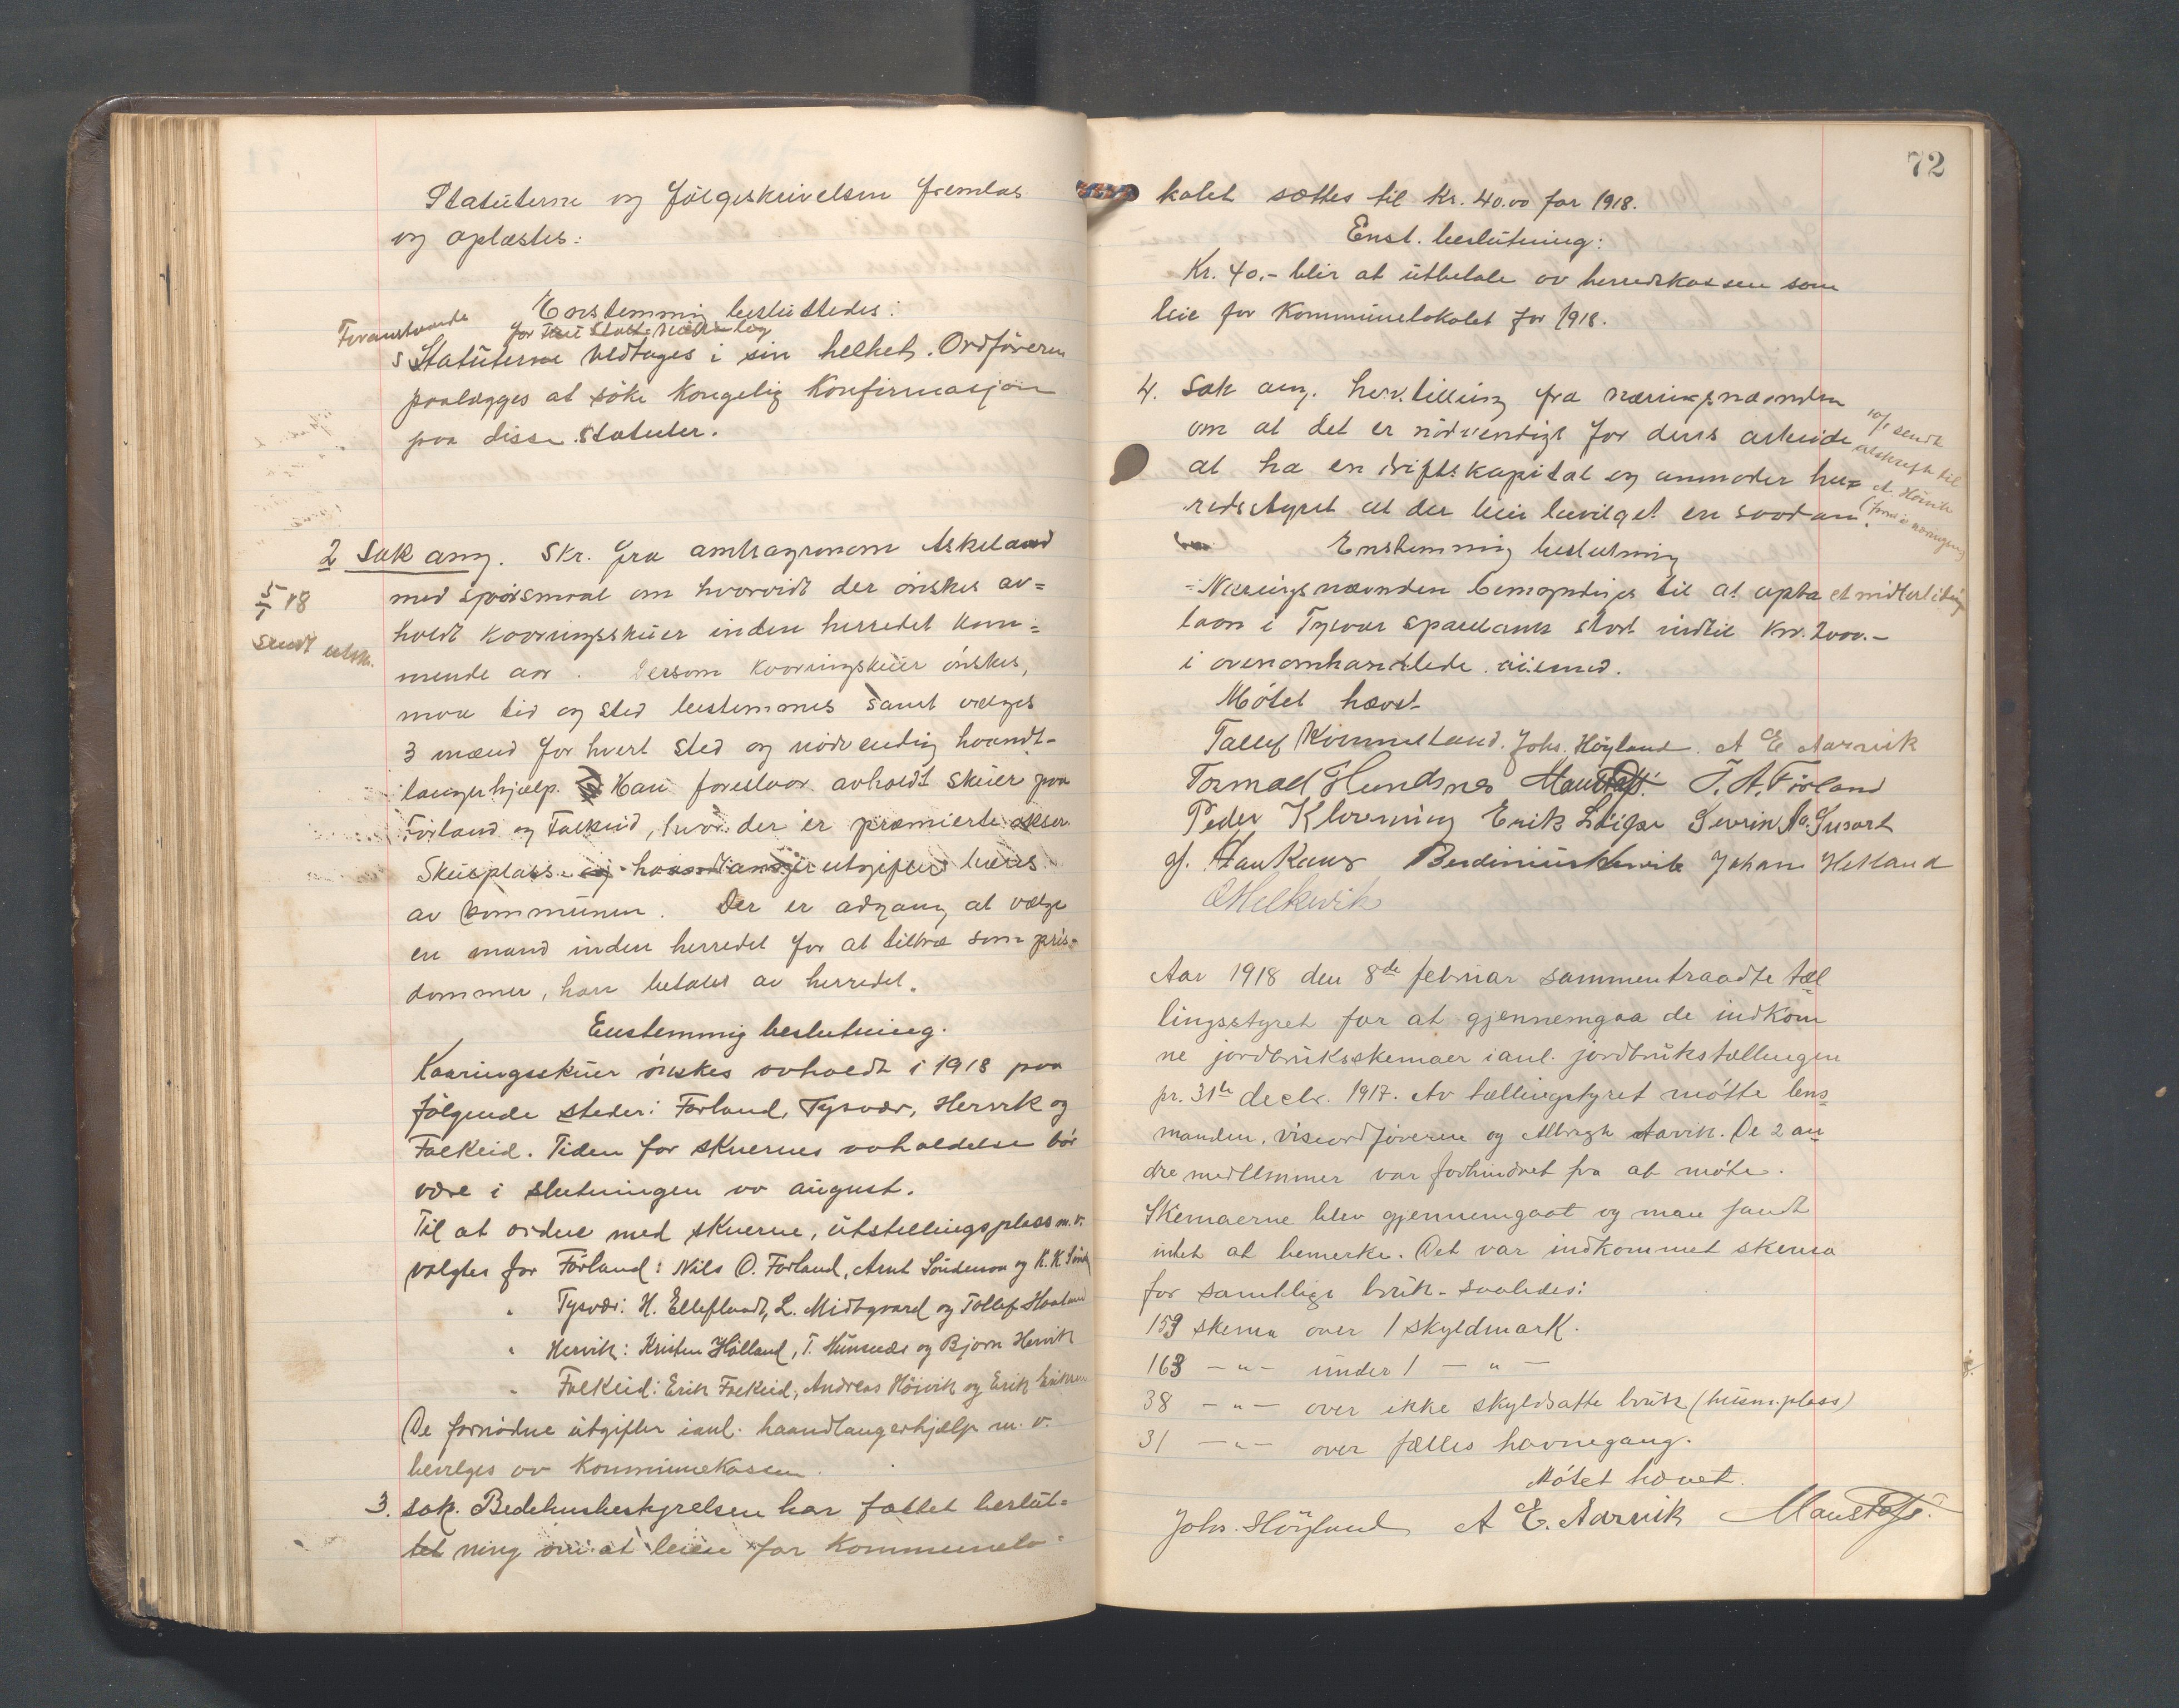 Statuterne og følgeskrivelsen fremlas
og oplæstes:
Enstemmig besluttedes:
Foranstaaende
Statuterne vedtages i sin helhet. Ordføreren
paalægges at søke Kongelig Konfirmasjon
paa disse statuter.
2 Sak ang. Skr. fra amtsagronom Askeland
med spørsmaal om hvorvidt der ønskes av=
holdt kaaringsskuer inden herredet kom=
mende aar. Dersom kaaringskuer ønskes,
maa tid og sted bestemmes samt vælges
3 mænd for hvert sted og nødvendig haandt-
langerhjælp. Han foreslaar avholdt skuer paa
Førland og Falkeid, hvor der er præmierte okser.
Skueplass og haandlanger utgifter bæres
av kommunen. Der er adgang at vælge
en mand inden herredet for at tiltræ som pris=
dommer, han betales av herredet.
5/1 18
Sendt utskr.
Enstemmig beslutning.
Kaaringsskuer ønskes avholdt i 1918 paa
følgende steder: Førland, Tysvær, Hervik og
Falkeid. Tiden for skuernes avholdelse bør
være i slutningen av august.
Til at ordne med skuerne, utstillingsplass m.v.
valgtes for Førland: Nils O. Førland, Arnt Søndenaa og K. K.
" Tysvær: H. Elleflaadt, L. Midtgaard og Tollef Haaland
" Hervik: Kristen Høiland, T. Hunsnæs og Bjørn Hervik
" Falkeid: Erik Falkeid, Andreas Høivik og Erik
De fornødne utgifter i anl. haandlangerhjælp m. v.
bevilges av Kommunekassen.
3. sak. Bedehusbestyrelsen har fattet beslut=
tet ning om at leien for kommunelo=
72
kalet sættes til Kr. 40.00 for 1918.
Enst. beslutning:
Kr. 40.- blir at utbetale av herredskassen som
leie for Kommunelokalet for 1918.
4. Sak ang. henstilling fra næringsnævnden
om at det er nødvendigt for deres arbeide
at ha en driftskapital og anmoder her=
redsstyret at der blir bevilget en saadan.
10/1 sendt
utskrift til
A. Høivik
Enstemmig beslutning
Næringsnævnden bemyndiges til at opta et midlertidig
laan i Tysvær sparebank stort indtil Kr. 2000.-
i ovenomhandlede øiemed.
Møtet hævet
Tallef Kommeland. Johs. Høyland. A E Aarvik
Tormod Hundsnes T. A. Førland
Peder Klovning Erik Severin
Johan Hetland
Aar 1918 den 8de februar sammentraadte tæl
lingsstyret for at gjennemgaa de indkom
ne jordbruksskemaer i anl. jordbrukstællingen
pr. 31te decbr. 1917. Av tællingstyret møtte lens
manden, viseordføreren og Albregt Aarvik. De 2 an
dre medlemmer var forhindret fra at møte.
Skemaerne blev gjennemgaat og man fandt
intet at bemerke. Det var indkommet skema
for samtlige bruk - saaledes:
159 skema over 1 skyldmark.
163 — " — under 1 — " —
38 — " — over ikke skyldsatte bruk (husm.plass)
31 — " — over fælles havnegang.
Møtet hævet.
Johs. Höyland A E. Aarvik